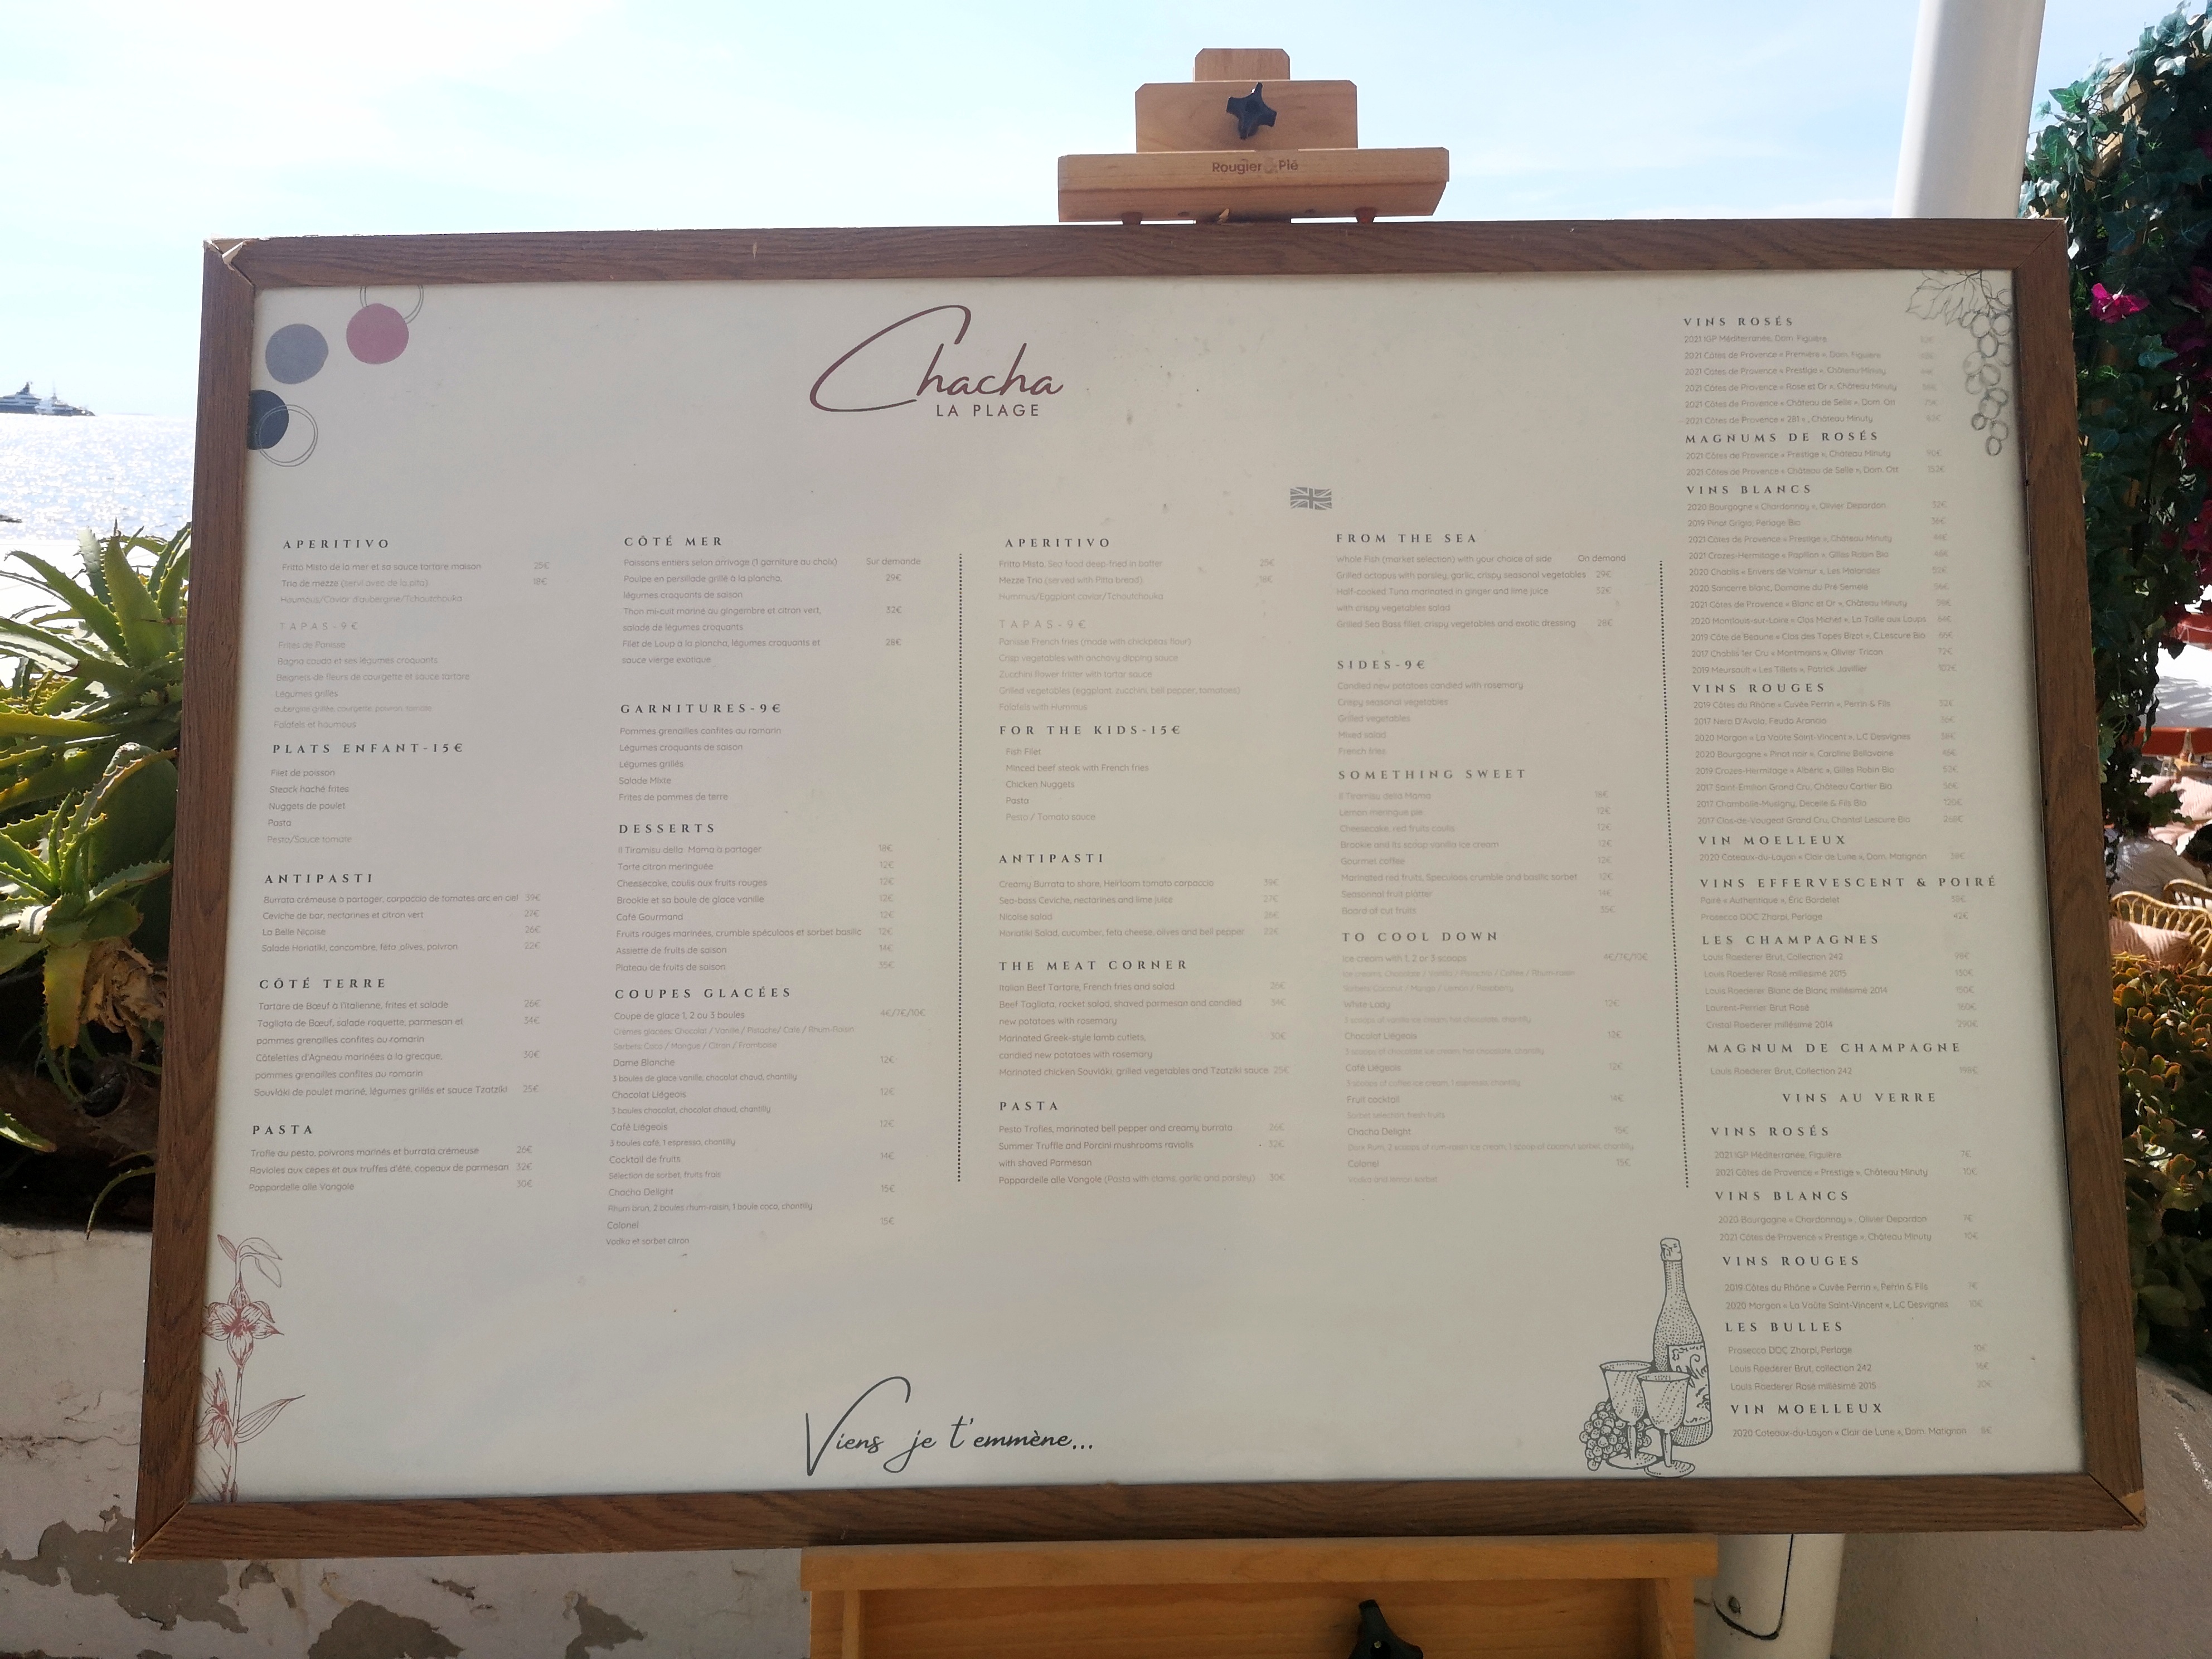 Rougier & Plé
Chacha
LA PLAGE
APERITIVO
Fritto Misto de la mer et sa sauce tartare maison 25€
Trio de mezze (servi avec de la pita) 18€
Houmous/Caviar d'aubergine/Tchoutchouka
TAPAS-9€
Frites de Panisse
Bagna cauda et ses légumes croquants
Beignets de fleurs de courgette et sauce tartare
Légumes grillés
aubergine grillée, courgette, poivron, tomate
Falafels et houmous
PLATS ENFANT-15€
Filet de poisson
Steack haché frites
Nuggets de poulet
Pasta
Pesto/Sauce tomate
ANTIPASTI
Burrata crémeuse à partager, carpaccio de tomates arc en ciel 39€
Ceviche de bar, nectarines et citron vert 27€
La Belle Nicoise 26€
Salade Horiatiki, concombre, feta, olives, poivron 22€
CÔTÉ TERRE
Tartare de Bœuf à l'italienne, frites et salade 26€
Tagliata de Bœuf, salade roquette, parmesan et 34€
pommes grenailles confites au romarin
Côtelettes d'Agneau marinées à la grecque, 30€
pommes grenailles confites au romarin
Souvláki de poulet mariné, légumes grillés et sauce Tzatziki 25€
PASTA
Trofie au pesto, poivrons marinés et burrata crémeuse 26€
Ravioles aux cèpes et aux truffes d'été, copeaux de parmesan 32€
Pappardelle alle Vongole 30€
CÔTÉ MER
Poissons entiers selon arrivage (1 garniture au choix) Sur demande
Poulpe en persillade grillé à la plancha, 29€
légumes croquants de saison
Thon mi-cuit mariné au gingembre et citron vert, 32€
salade de légumes croquants
Filet de Loup à la plancha, légumes croquants et 28€
sauce vierge exotique
GARNITURES-9€
Pommes grenailles confites au romarin
Légumes croquants de saison
Légumes grillés
Salade Mixte
Frites de pommes de terre
DESSERTS
Il Tiramisu della Mama à partager 18€
Tarte citron meringuée 12€
Cheesecake, coulis aux fruits rouges 12€
Brookie et sa boule de glace vanille 12€
Café Gourmand 12€
Fruits rouges marinées, crumble spéculoos et sorbet basilic 12€
Assiette de fruits de saison 14€
Plateau de fruits de saison 35€
COUPES GLACÉES
Coupe de glace 1, 2 ou 3 boules 4€/7€/10€
Crèmes glacées: Chocolat / Vanille / Pistache/ Café / Rhum-Raisin
Sorbets: Coco / Mangue / Citron / Framboise
Dame Blanche 12€
3 boules de glace vanille, chocolat chaud, chantilly
Chocolat Liégeois 12€
3 boules chocolat, chocolat chaud, chantilly
Café Liégeois 12€
3 boules café, 1 espresso, chantilly
Cocktail de fruits 14€
Sélection de sorbet, fruits frais
Chacha Delight 15€
Rhum brun, 2 boules rhum-raisin, 1 boule coco, chantilly
Colonel 15€
Vodka et sorbet citron
APERITIVO
Fritto Misto, Sea food deep fried in batter 25€
Mezze Trio (served with Pitta bread) 18€
Hummus/Eggplant caviar/Tchoutchouka
TAPAS-9€
Panisse French fries (made with chickpeas flour)
Crisp vegetables with anchovy dipping sauce
Zucchini flower fritter with tartar sauce
Grilled vegetables (eggplant, zucchini, bell pepper, tomatoes)
Falafels with Hummus
FOR THE KIDS-15€
Fish Filet
Minced beef steak with French fries
Chicken Nuggets
Pasta
Pesto / Tomato sauce
ANTIPASTI
Creamy Burrata to share, Heirloom tomato carpaccio 39€
Sea-bass Ceviche, nectarines and lime juice 27€
Nicoise salad 26€
Horiatiki Salad, cucumber, feta cheese, olives and bell pepper 22€
THE MEAT CORNER
Italian Beef Tartare, French fries and salad 26€
Beef Tagliata, rocket salad, shaved parmesan and candied 34€
new potatoes with rosemary
Marinated Greek-style lamb cutlets, 30€
candied new potatoes with rosemary
Marinated chicken Souvláki, grilled vegetables and Tzatziki sauce 25€
PASTA
Pesto Trofies, marinated bell pepper and creamy burrata 26€
Summer Truffle and Porcini mushrooms raviolis 32€
with shaved Parmesan
Pappardelle alle Vongole (Pasta with clams, garlic and parsley) 30€
FROM THE SEA
Whole Fish (market selection) with your choice of side On demand
Grilled octopus with parsley, garlic, crispy seasonal vegetables 29€
Half-cooked Tuna marinated in ginger and lime juice 32€
with crispy vegetables salad
Grilled Sea Bass fillet, crispy vegetables and exotic dressing 28€
SIDES-9€
Candied new potatoes candied with rosemary
Crispy seasonal vegetables
Grilled vegetables
Mixed salad
French fries
SOMETHING SWEET
Il Tiramisu della Mama 18€
Lemon meringue pie 12€
Cheesecake, red fruits coulis 12€
Brookie and its scoop vanilla ice cream 12€
Gourmet coffee 12€
Marinated red fruits, Speculoos crumble and basilic sorbet 12€
Seasonnal fruit platter 14€
Board of cut fruits 35€
TO COOL DOWN
Ice cream with 1, 2 or 3 scoops 4€/7€/10€
Ice creams: Chocolate / Vanilla / Pistachio / Coffee / Rhum-raisin
Sorbets: Coconut / Mango / Lemon / Raspberry
White Lady 12€
3 scoops of vanilla ice cream, hot chocolate, chantilly
Chocolat Liegeois 12€
3 scoops of chocolate ice cream, hot chocolate, chantilly
Café Liégeois 12€
3 scoops of coffee ice cream, 1 espresso, chantilly
Fruit cocktail 14€
Sorbet selection, fresh fruits
Chacha Delight 15€
Dark Rum, 2 scoops of rum-raisin ice cream, 1 scoop of coconut sorbet, chantilly
Colonel 15€
Vodka and lemon sorbet
VINS ROSÉS
2021 IGP Méditerranée, Dom. Figuière
2021 Côtes de Provence « Première », Dom. Figuière
2021 Côtes de Provence « Prestige », Château Minuty
2021 Côtes de Provence « Rose et Or », Château Minuty
2021 Côtes de Provence « Château de Selle », Dom. Ott
2021 Côtes de Provence « 281 », Château Minuty
MAGNUMS DE ROSÉS
2021 Côtes de Provence « Prestige », Château Minuty 90€
2021 Côtes de Provence « Château de Selle », Dom. Ott
VINS BLANCS
2020 Bourgogne « Chardonnay », Olivier Depardon 32€
2019 Pinot Grigio, Perlage Bio 36€
2021 Côtes de Provence « Prestige », Château Minuty
2021 Crozes-Hermitage « Papillon », Gilles Robin Bio
2020 Chablis « Envers de Valmur », Les Malandes
2020 Sancerre blanc, Domaine du Pré Semelé
2021 Côtes de Provence « Blanc et Or », Château Minuty
2020 Montlouis-sur-Loire « Clos Michet », La Taille aux Loups
2019 Côte de Beaune « Clos des Topes Bizot », C.Lescure Bio
2017 Chablis 1er Cru « Montmains », Olivier Tricon 72€
2019 Meursault « Les Tillets », Patrick Javillier 102€
VINS ROUGES
2019 Côtes du Rhône « Cuvée Perrin », Perrin & Fils 32€
2017 Nero D'Avola, Feudo Arancio 36€
2020 Morgon « La Voûte Saint-Vincent », LC Desvignes
2020 Bourgogne « Pinot noir », Caroline Bellavoine
2019 Crozes-Hermitage « Albéric », Gilles Robin Bio 52€
2017 Saint-Emilion Grand Cru, Château Cartier Bio
2017 Chambolle-Musigny, Decelle & Fils Bio 120€
2017 Clos-de-Vougeot Grand Cru, Chantal Lescure Bio
VIN MOELLEUX
2020 Coteaux-du-Layon « Clair de Lune », Dom. Matignon
VINS EFFERVESCENT & POIRÉ
Poiré « Authentique », Éric Bordelet
Prosecco DOC Zharpi, Perlage 42€
LES CHAMPAGNES
Louis Roederer Brut, Collection 242
Louis Roederer Rosé millésimé 2015
Louis Roederer Blanc de Blanc millésimé 2014
Laurent-Perrier Brut Rosé
Cristal Roederer millésimé 2014 290€
MAGNUM DE CHAMPAGNE
Louis Roederer Brut, Collection 242
VINS AU VERRE
VINS ROSÉS
2021 IGP Méditerranée, Figuière 7€
2021 Côtes de Provence « Prestige », Château Minuty 10€
VINS BLANCS
2020 Bourgogne « Chardonnay », Olivier Depardon 7€
2021 Côtes de Provence « Prestige », Château Minuty 10€
VINS ROUGES
2019 Côtes du Rhône « Cuvée Perrin », Perrin & Fils
2020 Morgon « La Voûte Saint-Vincent », LC Desvignes 10€
LES BULLES
Prosecco DOC Zharpi, Perlage 10€
Louis Roederer Brut, collection 242 16€
Louis Roederer Rosé millésimé 2015 20€
VIN MOELLEUX
2020 Coteaux-du-Layon « Clair de Lune », Dom. Matignon
Viens je t'emmène...